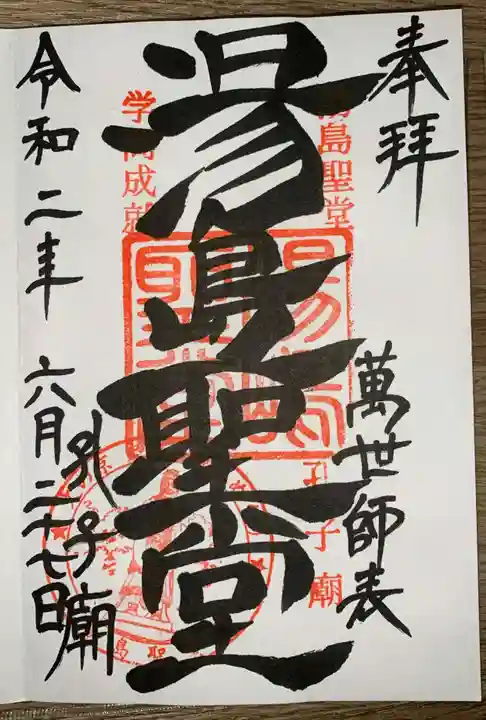 奉拝
萬世師表
湯島聖堂
孔子廟
令和二年 六月二十七日
湯島聖堂
孔子廟
学問成就